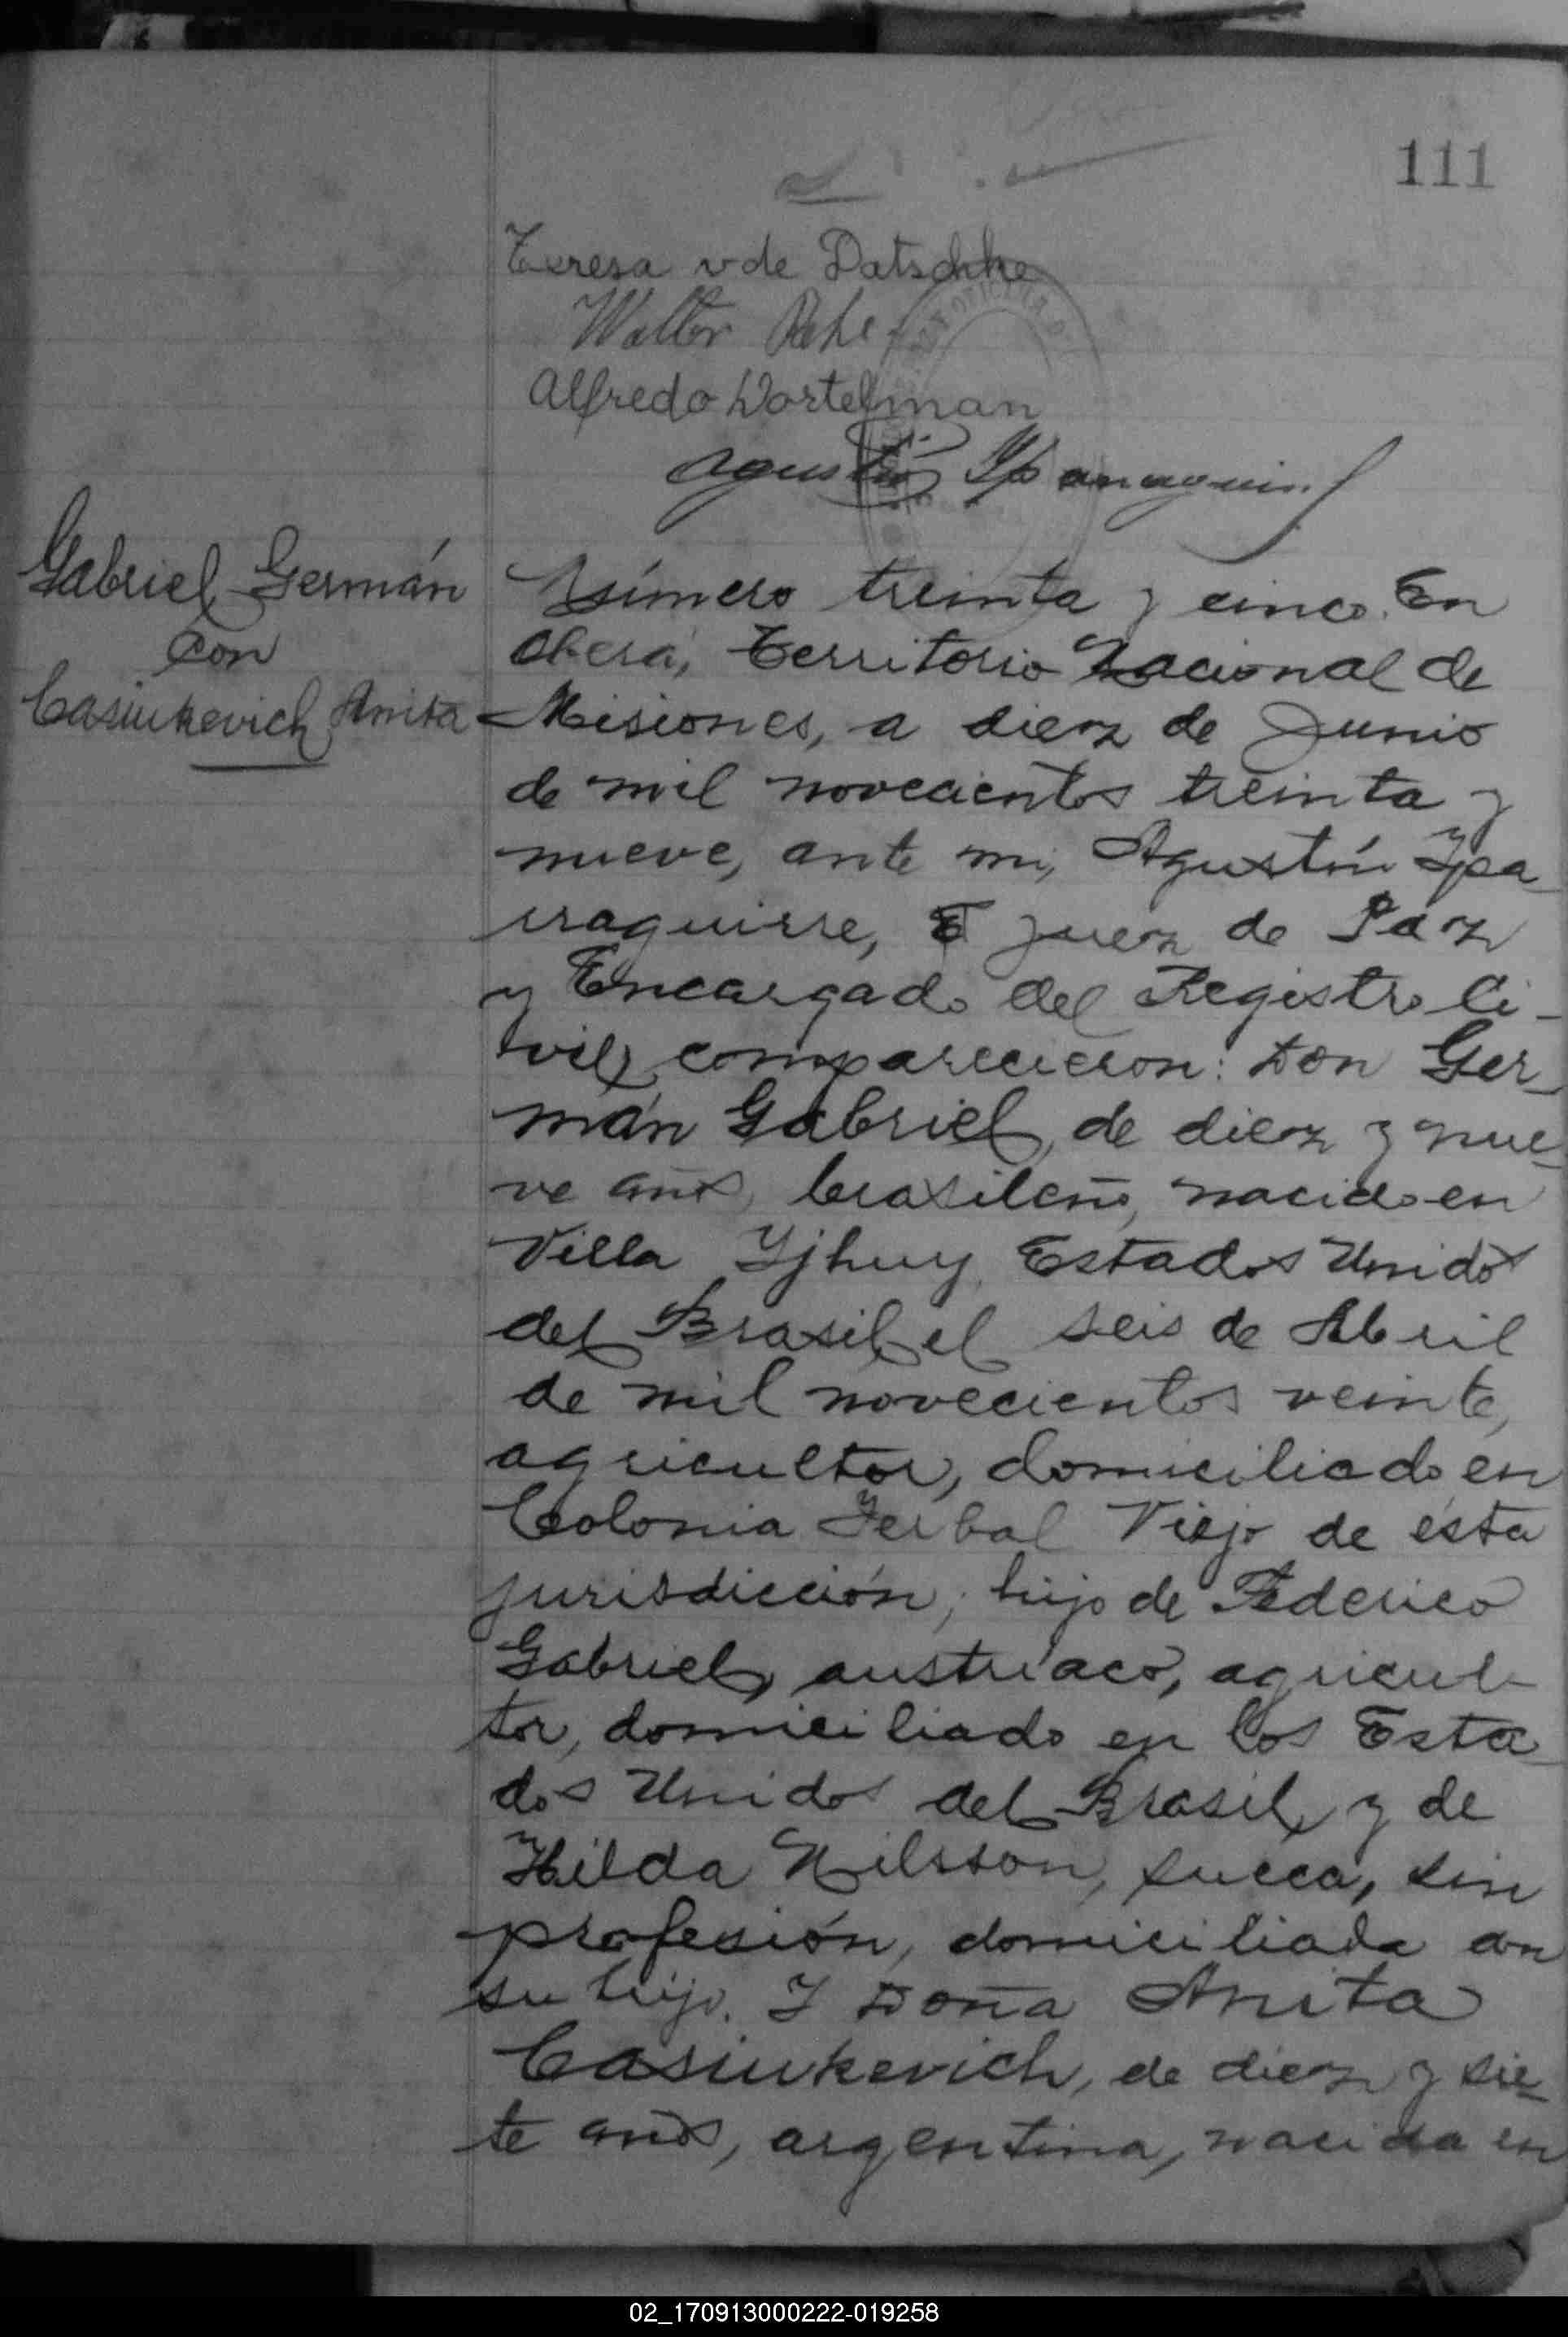 111
Teresa v de Datschke
Walter
Alfredo Dortelman
Agustín Yparraguirre
Gabriel Germán
con
Casiukevich Anita
Número treinta y cinco. En
Oberá, Territorio Nacional de
Misiones, a diez de Junio
de mil novecientos treinta y
nueve, ante mi, Agustín Ypa
rraguirre, Juez de Paz
y Encargado del Registro Ci-
vil, comparecieron: Don Ger
mán Gabriel, de diez y nue-
ve años, brasileño, nacido en
Villa Yjhuy, Estados Unidos
del Brasil, el seis de Abril
de mil novecientos veinte,
agricultor, domiciliado en
Colonia Yerbal Viejo de ésta
jurisdicción; hijo de Federico
Gabriel, austríaco, agricul-
tor, domiciliado en los Esta
dos Unidos del Brasil, y de
Hilda Nilsson, sueca, sin
profesión, domiciliada con
su hijo. Y Doña Anita
Casiukevich, de diez y sie-
te años, argentina, nacida en
02_170913000222-019258